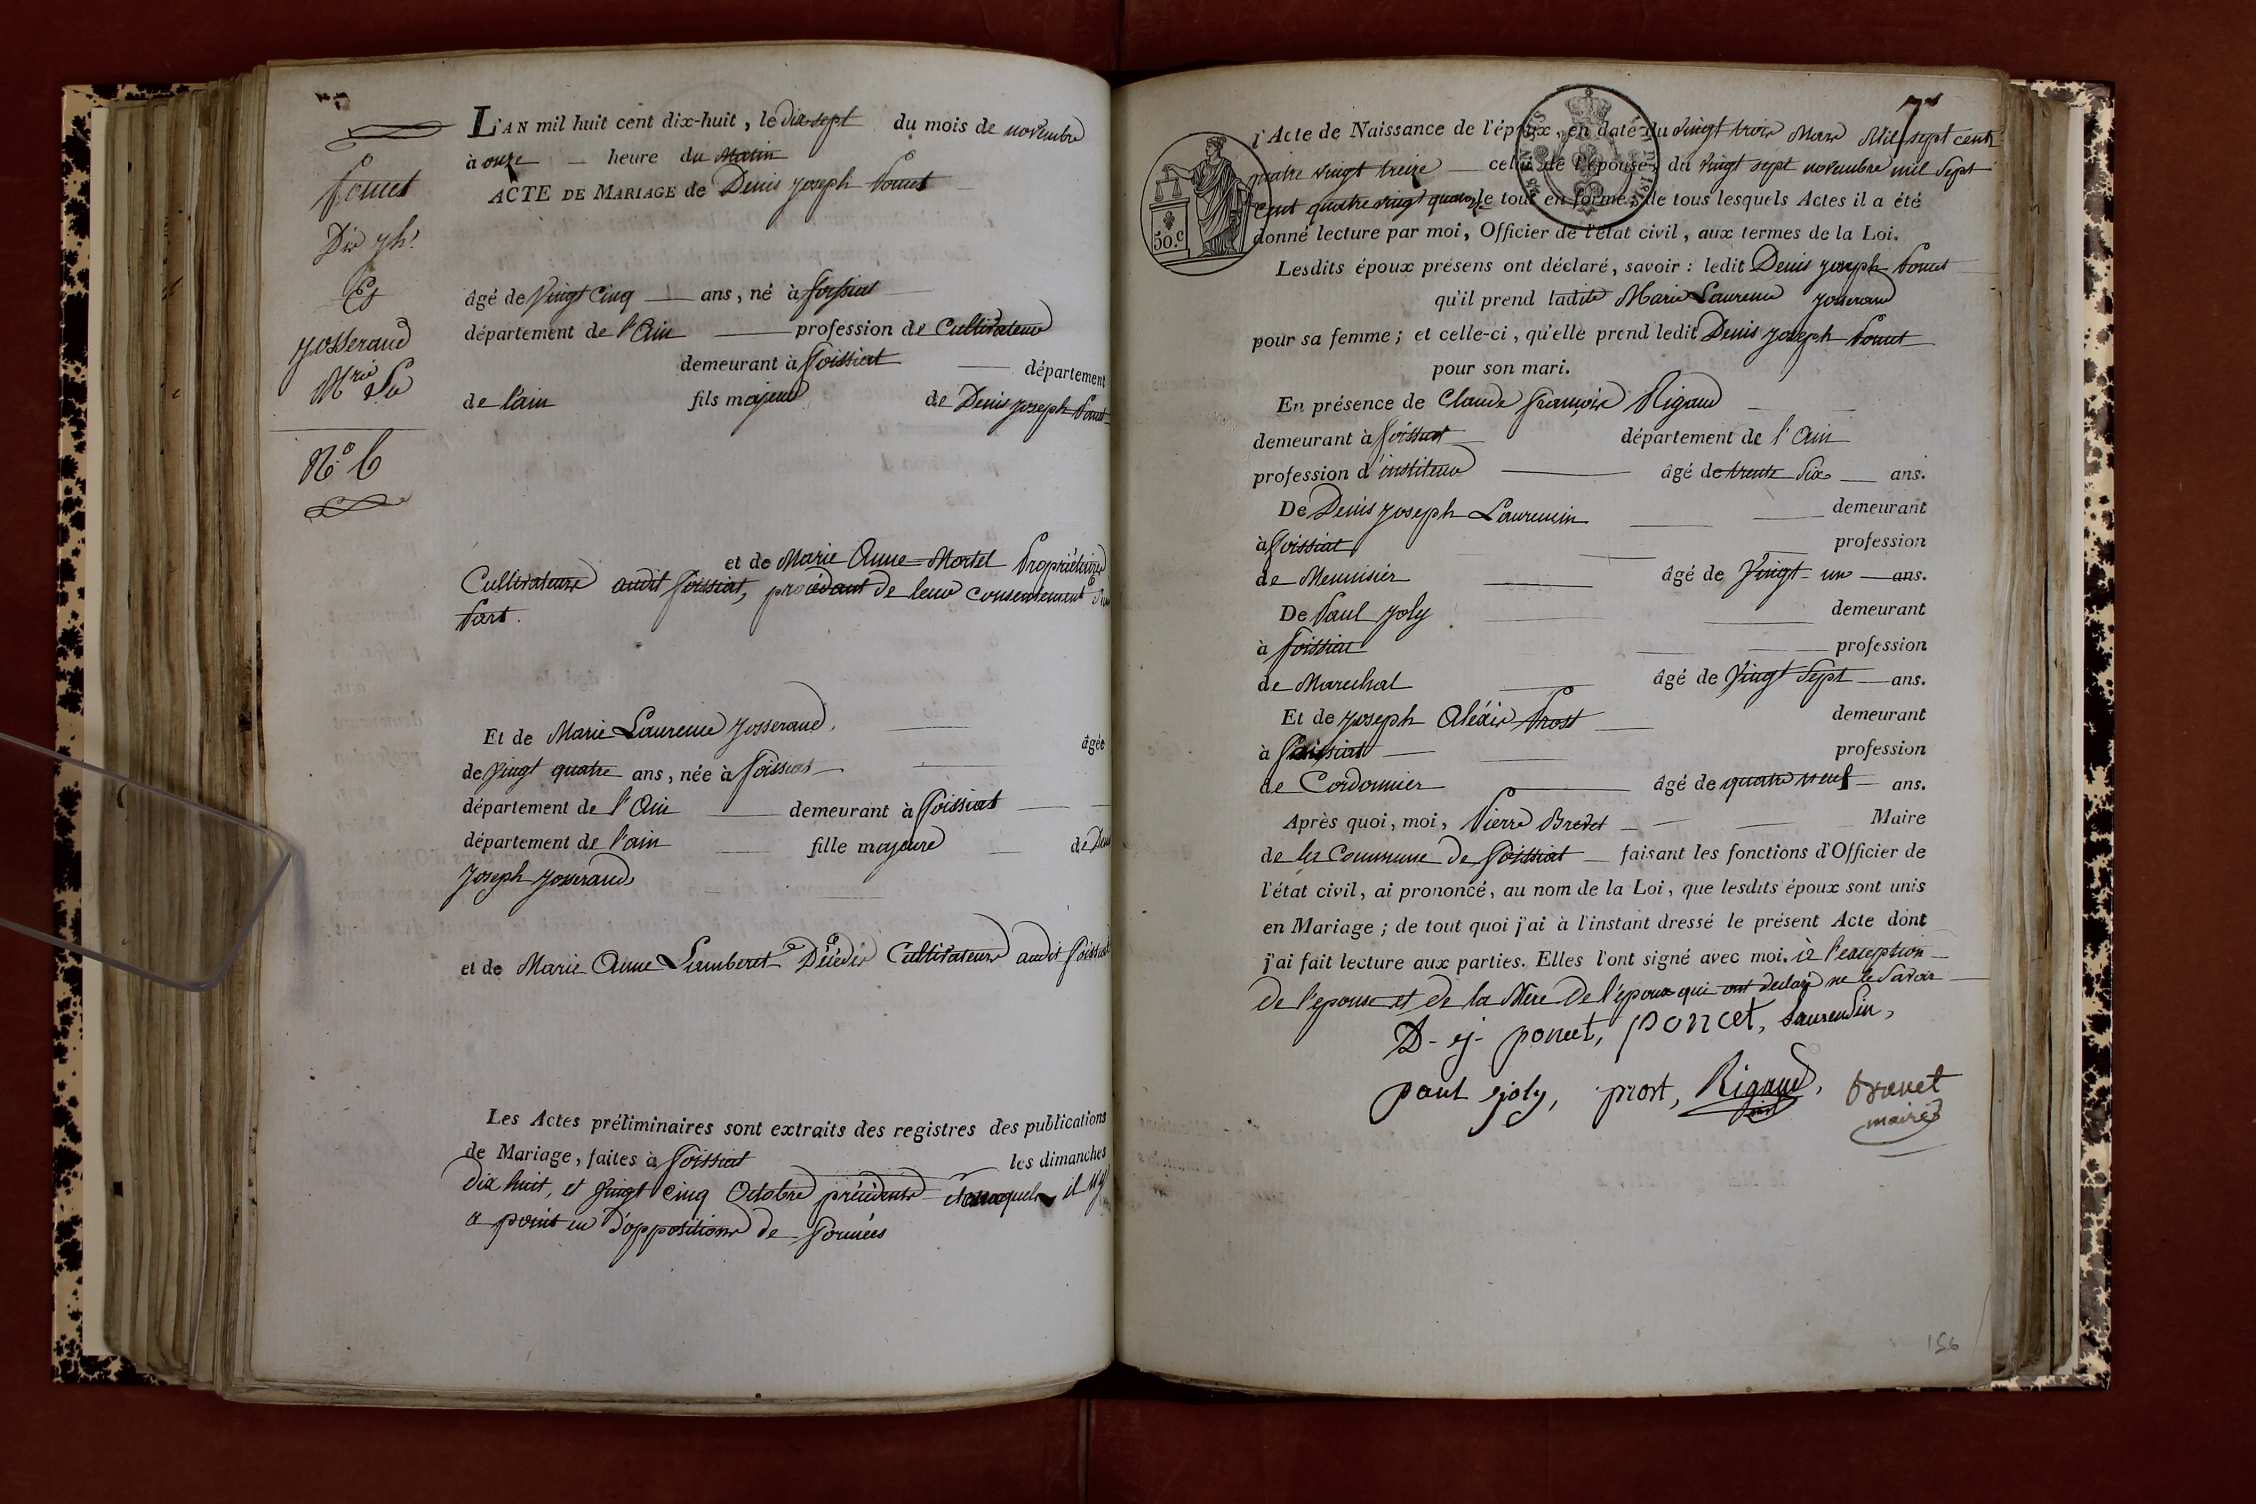 L'AN mil huit cent dix-huit, le dix sept du mois de novembre
à onze heure du Matin
ACTE DE MARIAGE de Denis joseph Poncet
Poncet
Dis jph.
Et
josserand
Mrie Lu
N.º 6
âgé de Vingt Cinq ans, né à foissiat
département de l'Ain profession de Cultivateur
demeurant à foissiat département
de l'ain fils majeur de Denis joseph Poncet
et de Marie Anne Mortel Propriétaires
Cultivateurs audit foissiat, procédant de leur consentement
Part.
Et de Marie Laurence josserand, âgée
de Vingt quatre ans, née à foissiat
département de l'Ain demeurant à foissiat
département de l'ain fille majeure de Denis
joseph josserand
et de Marie Anne Lamberet Décédés Cultivateurs audit foissiat
Les Actes préliminaires sont extraits des registres des publications
de Mariage, faites à foissiat les dimanches
dix huit, et Vingt cinq Octobre précédents il n'y
a point eu d'oppositions de formées
l'Acte de Naissance de l'époux, en date du Vingt trois Mars Mil sept cent
quatre vingt treize celui de l'épouse, du Vingt sept novembre mil sept
cent quatre vingt quatorze le tout en forme; de tous lesquels Actes il a été
donné lecture par moi, Officier de l'état civil, aux termes de la Loi.
50.c
Lesdits époux présens ont déclaré, savoir : ledit Denis joseph Poncet
qu'il prend ladite Marie Laurence josserand
pour sa femme; et celle-ci, qu'elle prend ledit Denis joseph Poncet
pour son mari.
En présence de Claude françois Rigaud
demeurant à foissiat département de l'Ain
profession d'instituteur âgé de trente Six ans.
De Denis joseph Laurencin demeurant
à foissiat profession
de Menuisier âgé de Vingt un ans.
De Paul joly demeurant
à foissiat profession
de Marechal âgé de Vingt Sept ans.
Et de joseph Aléxis Prost demeurant
à foissiat profession
de Cordonnier âgé de quarante neuf ans.
Après quoi, moi, Pierre Brevet Maire
de la Commune de foissiat faisant les fonctions d'Officier de
l'état civil, ai prononcé, au nom de la Loi, que lesdits époux sont unis
en Mariage; de tout quoi j'ai à l'instant dressé le présent Acte dont
j'ai fait lecture aux parties. Elles l'ont signé avec moi. à l'exception
de l'epouse et de la Mère de l'époux qui ont declaré ne le Savoir
D- ej- poncet, poncet, Laurencin,
paul joly, prost, Rigaud, brevet
maire
156